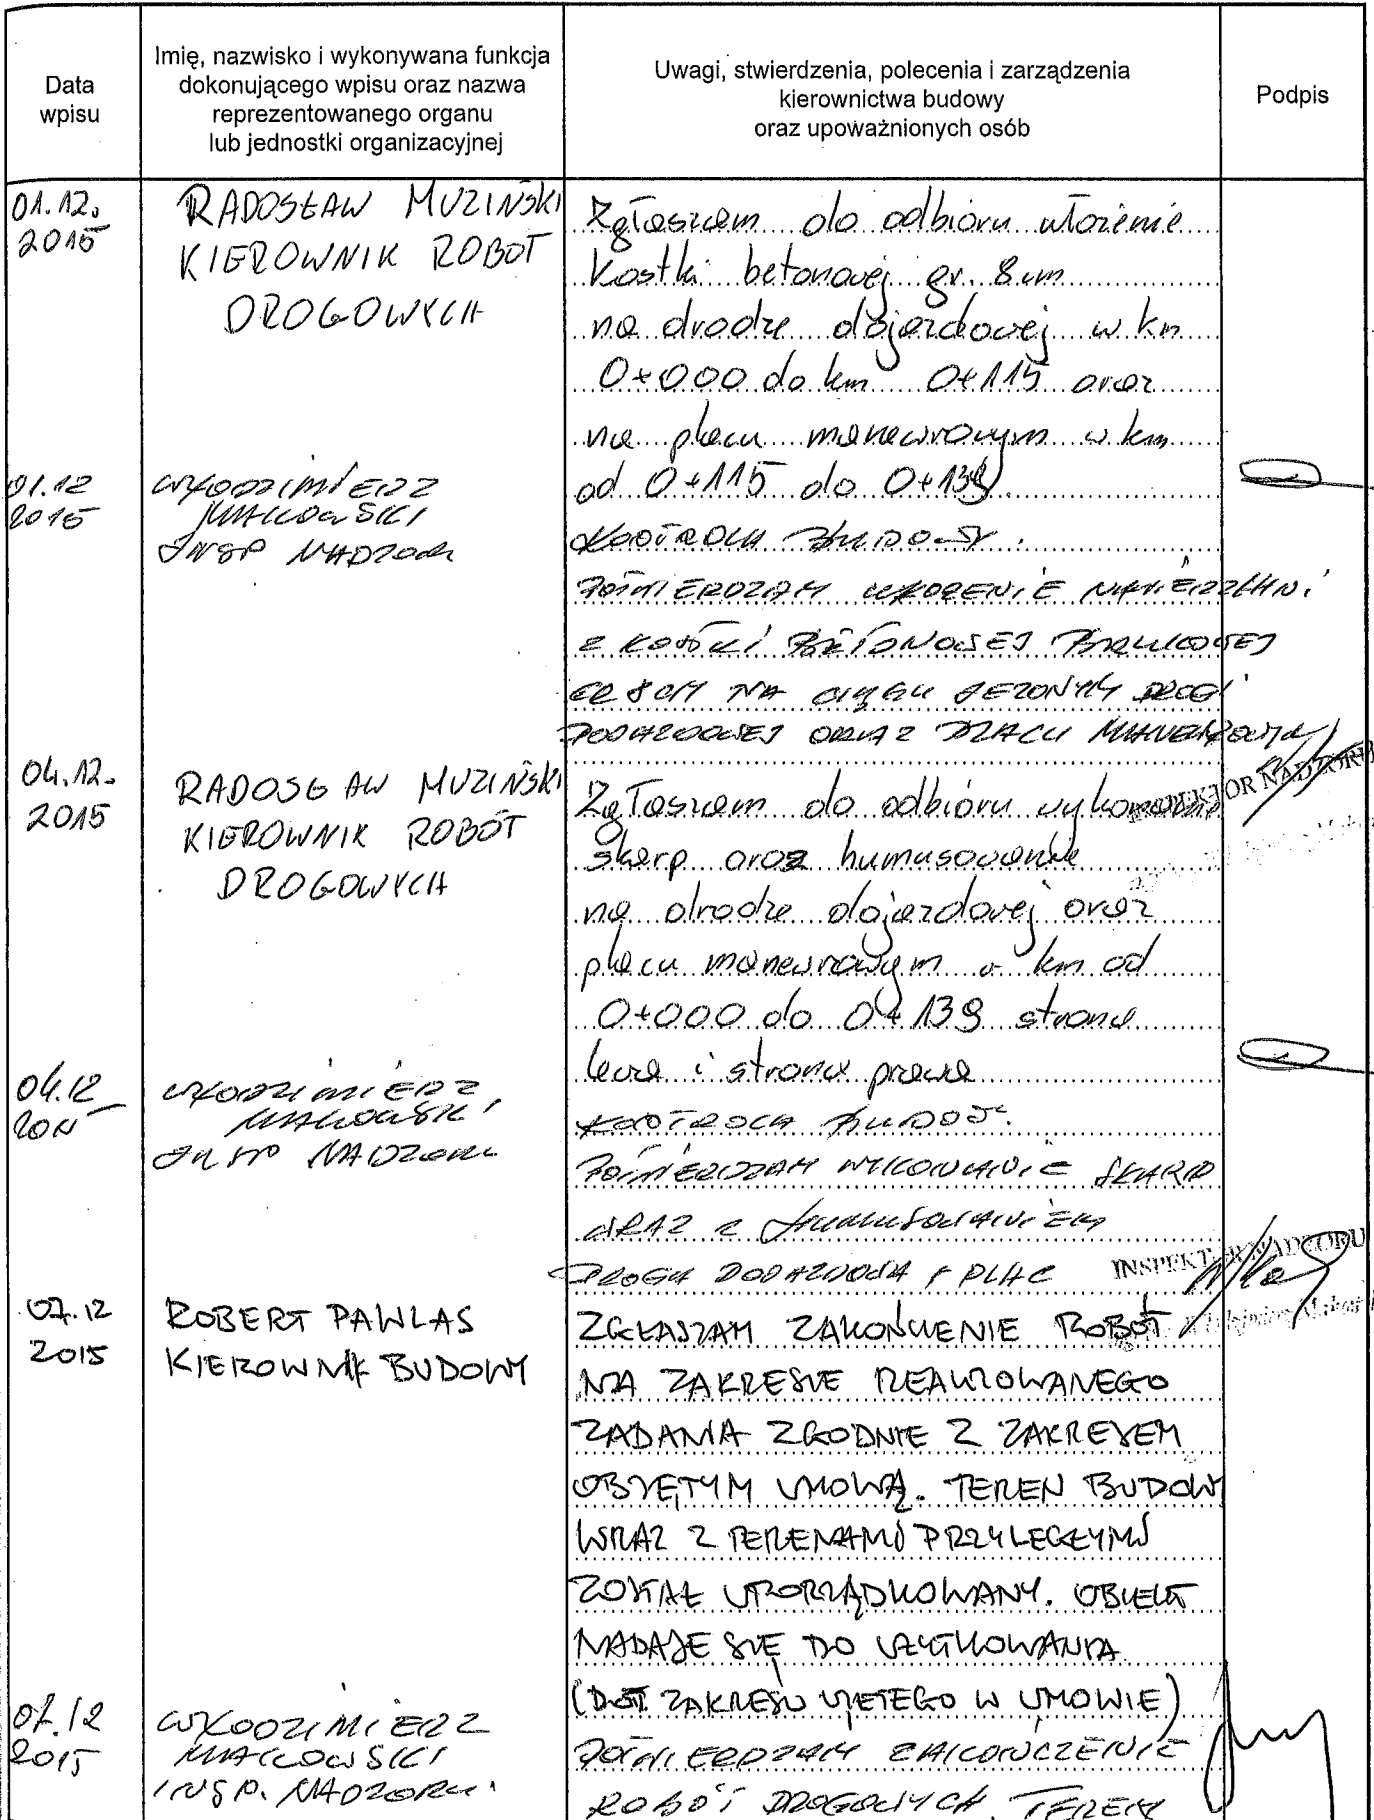 Data
wpisu
Imię, nazwisko i wykonywana funkcja
dokonującego wpisu oraz nazwa
reprezentowanego organu
lub jednostki organizacyjnej
Uwagi, stwierdzenia, polecenia i zarządzenia
kierownictwa budowy
oraz upoważnionych osób
Podpis
01.12.
2015
RADOSŁAW MUZIŃSKI
KIEROWNIK ROBÓT
DROGOWYCH
Zgłaszam do odbioru ułożenie
kostki betonowej gr. 8cm
na drodze dojazdowej w km
0+000 do km 0+115 oraz
na placu manewrowym w km
od 0+115 do 0+139.
01.12
2015
WŁODZIMIERZ
MAKOWSKI
INSP NADZORU
KONTROLA BUDOWY.
POTWIERDZAM UŁOŻENIE NAWIERZCHNI
Z KOSTKI BETONOWEJ BRUKOWEJ
GR 8CM NA CIĄGU JEZDNYM DROGI
DOJAZDOWEJ ORAZ PLACU MANEWROWYM
04.12.
2015
RADOSŁAW MUZIŃSKI
KIEROWNIK ROBÓT
DROGOWYCH
INSPEKTOR NADZORU
Zgłaszam do odbioru wykonanie
skarp oraz humusowanie
na drodze dojazdowej oraz
placu manewrowym w km od
0+000 do 0+139 strona
lewa i strona prawa
04.12
2015
WŁODZIMIERZ
MAKOWSKI
INSP NADZORU
KONTROLA BUDOWY.
POTWIERDZAM WYKONANIE SKARP
WRAZ Z HUMUSOWANIEM
DROGA DOJAZDOWA + PLAC
INSPEKTOR NADZORU
07.12
2015
ROBERT PAWLAS
KIEROWNIK BUDOWY
ZGŁASZAM ZAKOŃCZENIE ROBÓT
NA ZAKRESIE REALIZOWANEGO
ZADANIA ZGODNIE Z ZAKRESEM
OBJĘTYM UMOWĄ. TEREN BUDOWY
WRAZ Z TERENAMI PRZYLEGŁYMI
ZOSTAŁ UPORZĄDKOWANY. OBIEKT
NADAJE SIĘ DO UŻYTKOWANIA
(DOT. ZAKRESU UJĘTEGO W UMOWIE)
07.12
2015
WŁODZIMIERZ
MAKOWSKI
INSP. NADZORU
POTWIERDZAM ZAKOŃCZENIE
ROBÓT DROGOWYCH. TEREN